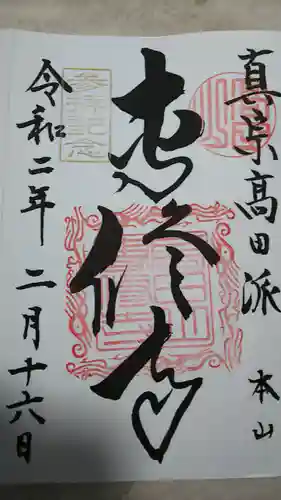 真宗高田派
本山
専修寺
参拝記念
令和二年二月十六日